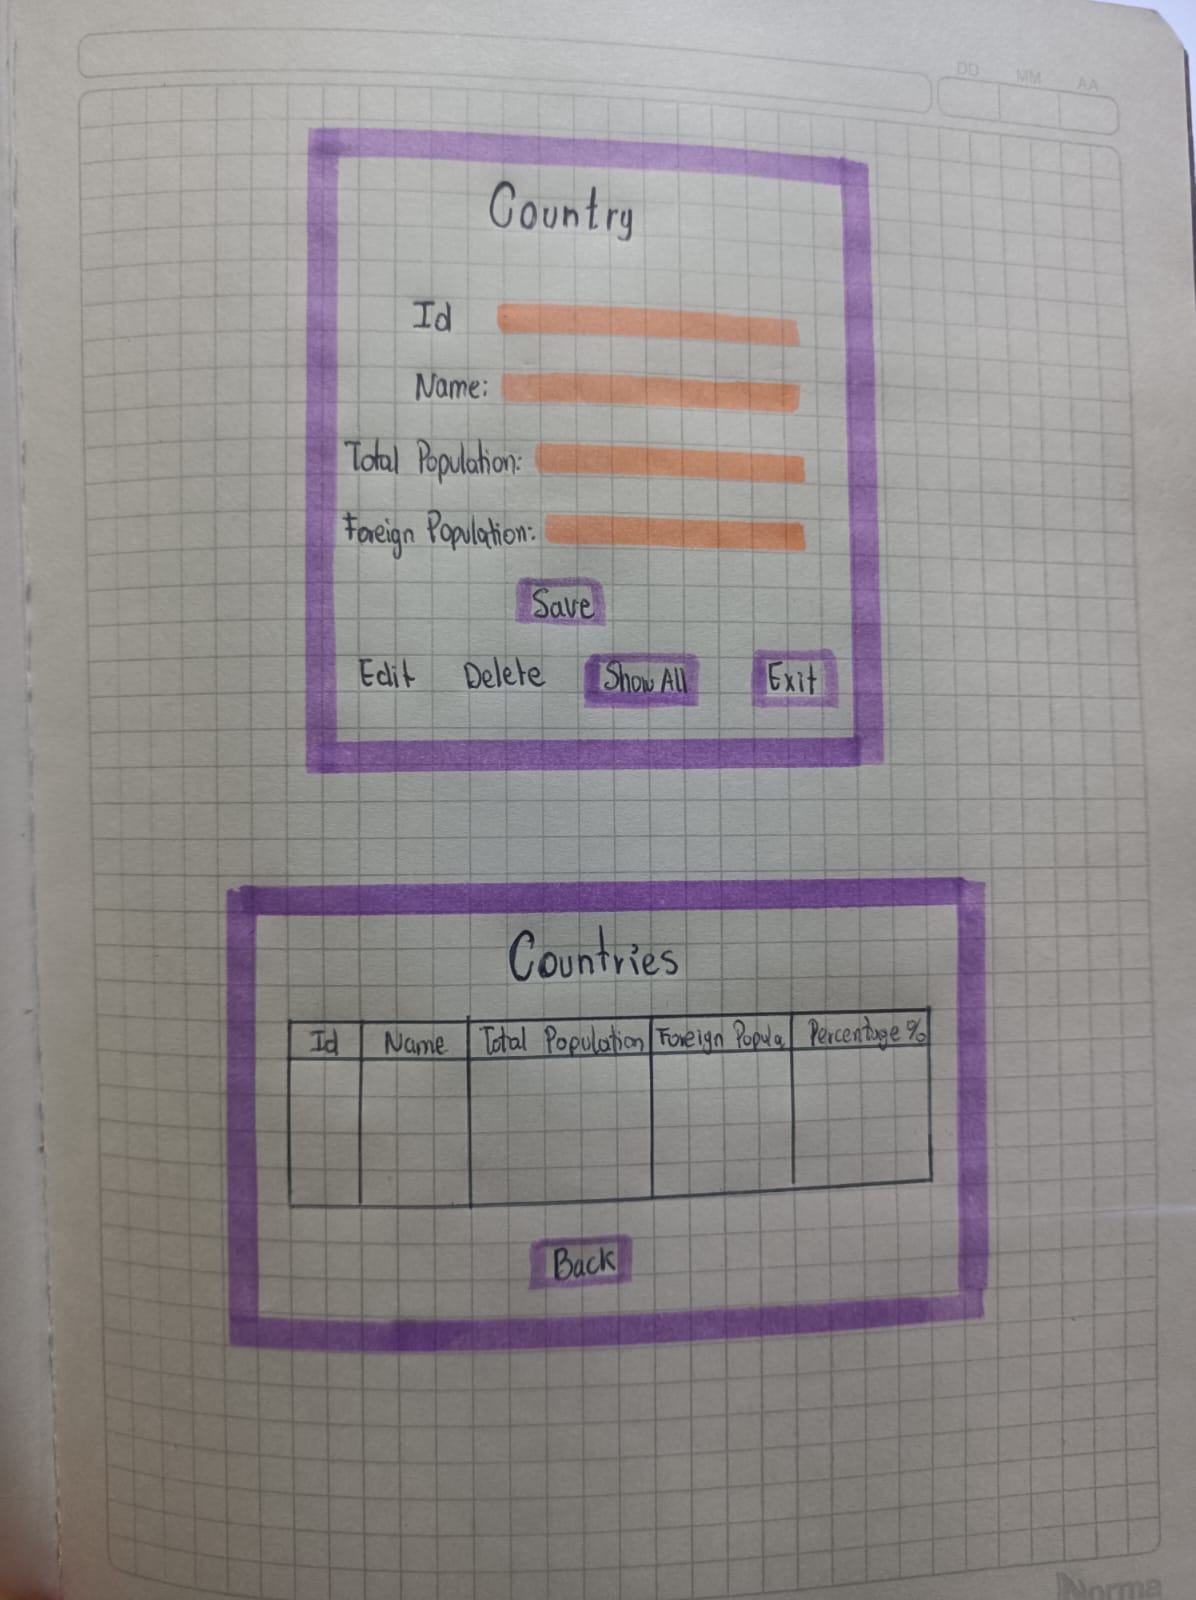 DD MM AA
Country
Id
Name:
Total Population:
Foreign Population:
Save
Edit Delete Show All Exit
Countries
Id Name Total Population Foreign Popula Percentage %
Back
Norma